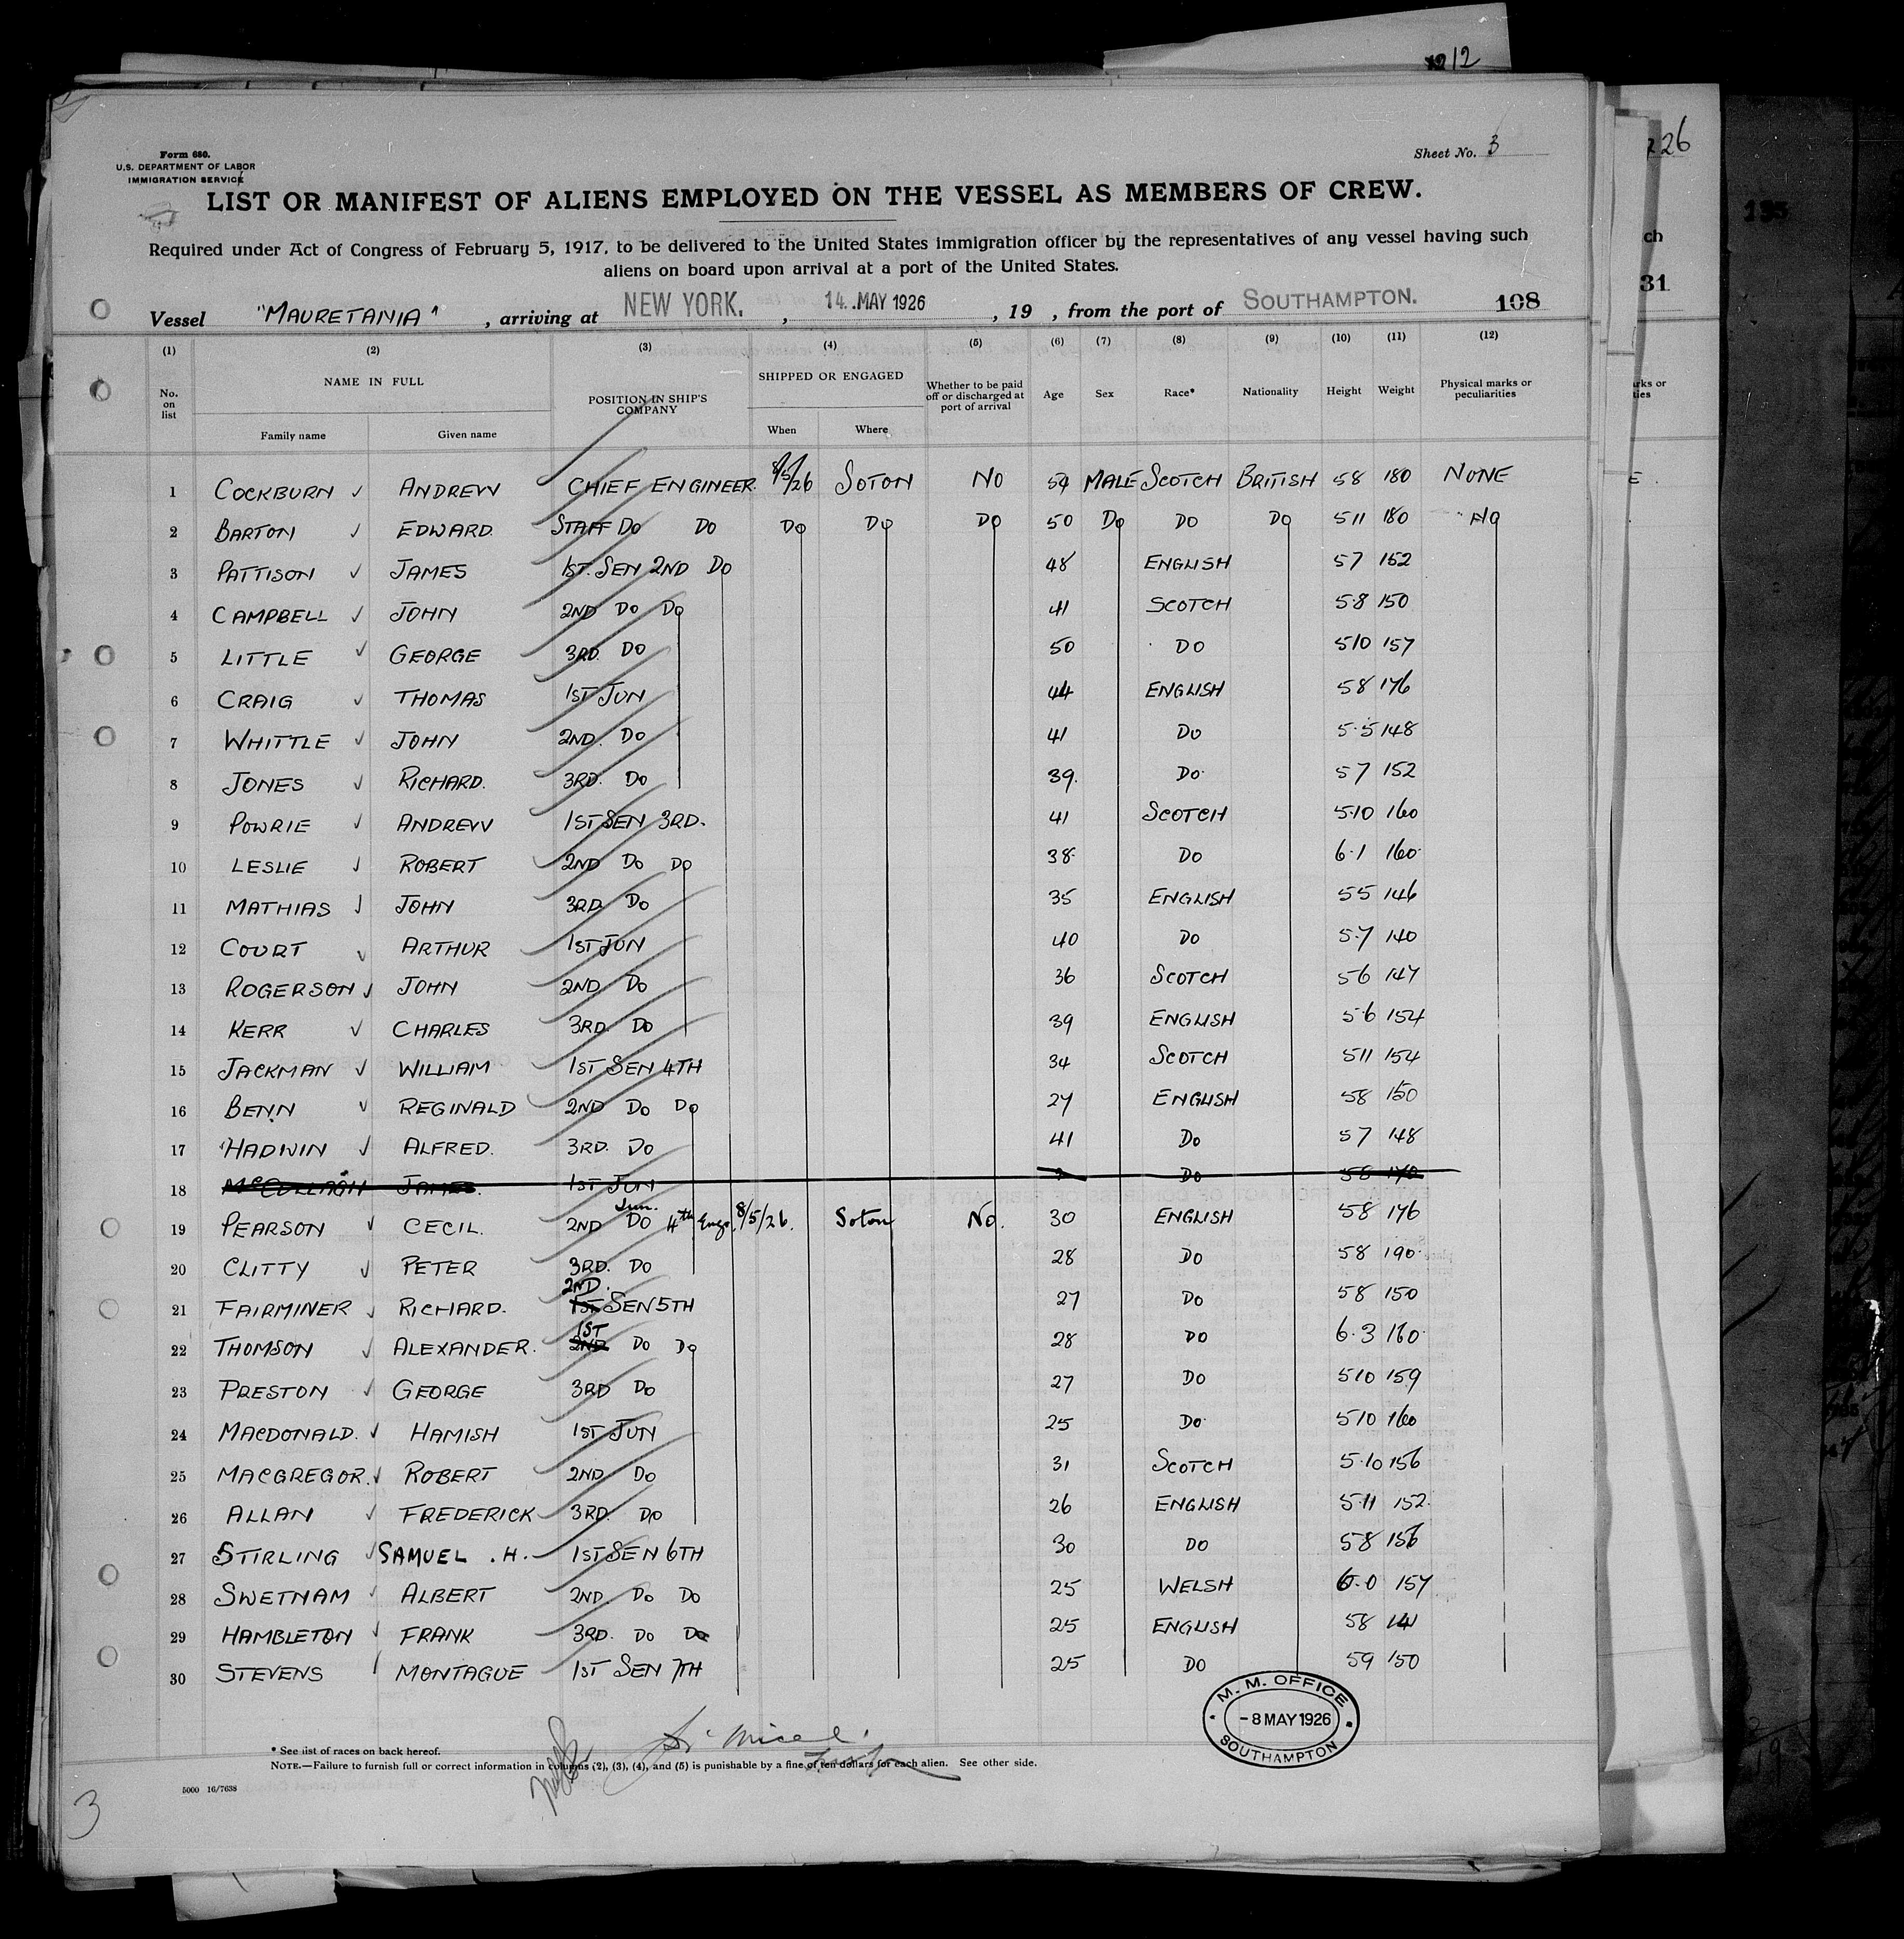 1212
Form 680.
U.S. DEPARTMENT OF LABOR
IMMIGRATION SERVICE
Sheet No. 3
26
LIST OR MANIFEST OF ALIENS EMPLOYED ON THE VESSEL AS MEMBERS OF CREW.
Required under Act of Congress of February 5, 1917, to be delivered to the United States immigration officer by the representatives of any vessel having such
aliens on board upon arrival at a port of the United States.
Vessel "MAURETANIA", arriving at NEW YORK. , 14 MAY 1926 , 19 , from the port of SOUTHAMPTON. 108
(1) (2) (3) (4) (5) (6) (7) (8) (9) (10) (11) (12)
No. on list NAME IN FULL POSITION IN SHIP'S COMPANY SHIPPED OR ENGAGED Whether to be paid off or discharged at port of arrival Age Sex Race* Nationality Height Weight Physical marks or peculiarities
Family name Given name When Where
1 COCKBURN ✓ ANDREW CHIEF ENGINEER 8/5/26 SOTON NO 54 MALE SCOTCH BRITISH 58 180 NONE
2 BARTON ✓ EDWARD. STAFF DO DO DO DO DO 50 DO DO DO 511 180 DO
3 PATTISON ✓ JAMES 1ST. SEN 2ND DO 48 ENGLISH 57 152
4 CAMPBELL ✓ JOHN 2ND DO DO 41 SCOTCH 5·8 150
5 LITTLE ✓ GEORGE 3RD. DO 50 DO 510 157
6 CRAIG ✓ THOMAS 1ST JUN 44 ENGLISH 58 176
7 WHITTLE ✓ JOHN 2ND. DO 41 DO 5·5 148
8 JONES ✓ RICHARD. 3RD. DO 39. DO 57 152
9 POWRIE ✓ ANDREW 1ST SEN 3RD. 41 SCOTCH 5·10 160
10 LESLIE ✓ ROBERT 2ND DO DO 38 DO 6·1 160
11 MATHIAS ✓ JOHN 3RD DO 35 ENGLISH 55 146
12 COURT ✓ ARTHUR 1ST JUN 40 DO 5·7 140
13 ROGERSON ✓ JOHN 2ND DO 36 SCOTCH 56 147
14 KERR ✓ CHARLES 3RD. DO 39 ENGLISH 5·6 154
15 JACKMAN ✓ WILLIAM 1ST SEN 4TH 34 SCOTCH 511 154
16 BENN ✓ REGINALD 2ND DO DO 27 ENGLISH 58 150
17 HADWIN ✓ ALFRED. 3RD. DO 41 DO 57 148
18 McCULLAGH JAMES. 1ST JUN DO 58 170
19 PEARSON ✓ CECIL. 2ND DO Jun. 4th Engr. 8/5/26. Soton No. 30 ENGLISH 58 176
20 CLITTY ✓ PETER 3RD. DO 28 DO 58 190
21 FAIRMINER ✓ RICHARD. 1ST 2ND. SEN 5TH 27 DO 58 150
22 THOMSON ✓ ALEXANDER. 2ND 1ST DO DO 28 DO 6·3 160
23 PRESTON ✓ GEORGE 3RD DO 27 DO 510 159
24 MACDONALD. ✓ HAMISH 1ST JUN 25 DO 510 160
25 MACGREGOR. ✓ ROBERT 2ND DO 31 SCOTCH 5·10 156
26 ALLAN ✓ FREDERICK 3RD. DO 26 ENGLISH 5·11 152
27 STIRLING ✓ SAMUEL .H. 1ST SEN 6TH 30 DO 58 156
28 SWETNAM ✓ ALBERT 2ND. DO DO 25 WELSH 6·0 157
29 HAMBLETON ✓ FRANK 3RD. DO DO 25 ENGLISH 58 141
30 STEVENS ✓ MONTAGUE 1ST SEN 7TH 25 DO 59 150
M. M. OFFICE
-8 MAY 1926
SOUTHAMPTON
* See list of races on back hereof.
NOTE.—Failure to furnish full or correct information in columns (2), (3), (4), and (5) is punishable by a fine of ten dollars for each alien. See other side.
5000 16/7638
3
ch
31
rks or
ties
E.